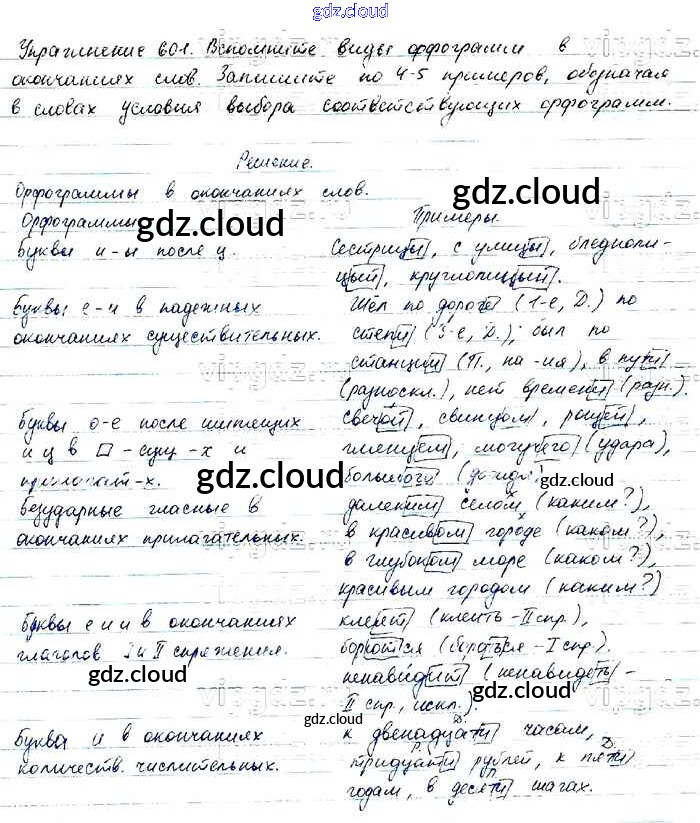 gdz.cloud
Упражнение 601. Вспомните виды орфограмм в
окончаниях слов. Запишите по 4-5 примеров, обозначая
в словах условия выбора соответствующих орфограмм.
Решение.
Орфограммы в окончаниях слов.
gdz.cloud
Орфограммы
Примеры.
gdz.cloud
Буквы и-ы после ц.
Сестрицы, с улицы, бледноли-
цый, круглолицый.
Буквы е-и в падежных
Шёл по дороге (1-е, Д.) по
окончаниях существительных.
степи (3-е, Д.), был по
станции (П., на -ия), в пути
(разноскл.), нет времени (разн.).
Буквы о-е после шипящих
свечой, свинцом, рощей,
и ц в -сущ-х и
gdz.cloud
птенцом, могучего (удара),
gdz.cloud
прилагат-х.
большого
gdz.cloud
безударные гласные в
далеким селом (каким?),
окончаниях прилагательных.
в красивом городе (каком?),
в глубоком море (каком?),
красивым городом (каким?)
Буквы е и и в окончаниях
клеит (клеить - II спр.),
глаголов I и II спряжения.
борются (бороться - I спр.).
gdz.cloud
gdz.cloud
ненавидит (ненавидеть -
II спр., искл.).
gdz.cloud
Буква и в окончаниях
к двенадцати часам,
количеств. числительных.
тридцати рублей, к пяти
gdz.cloud
годам, в десяти шагах.